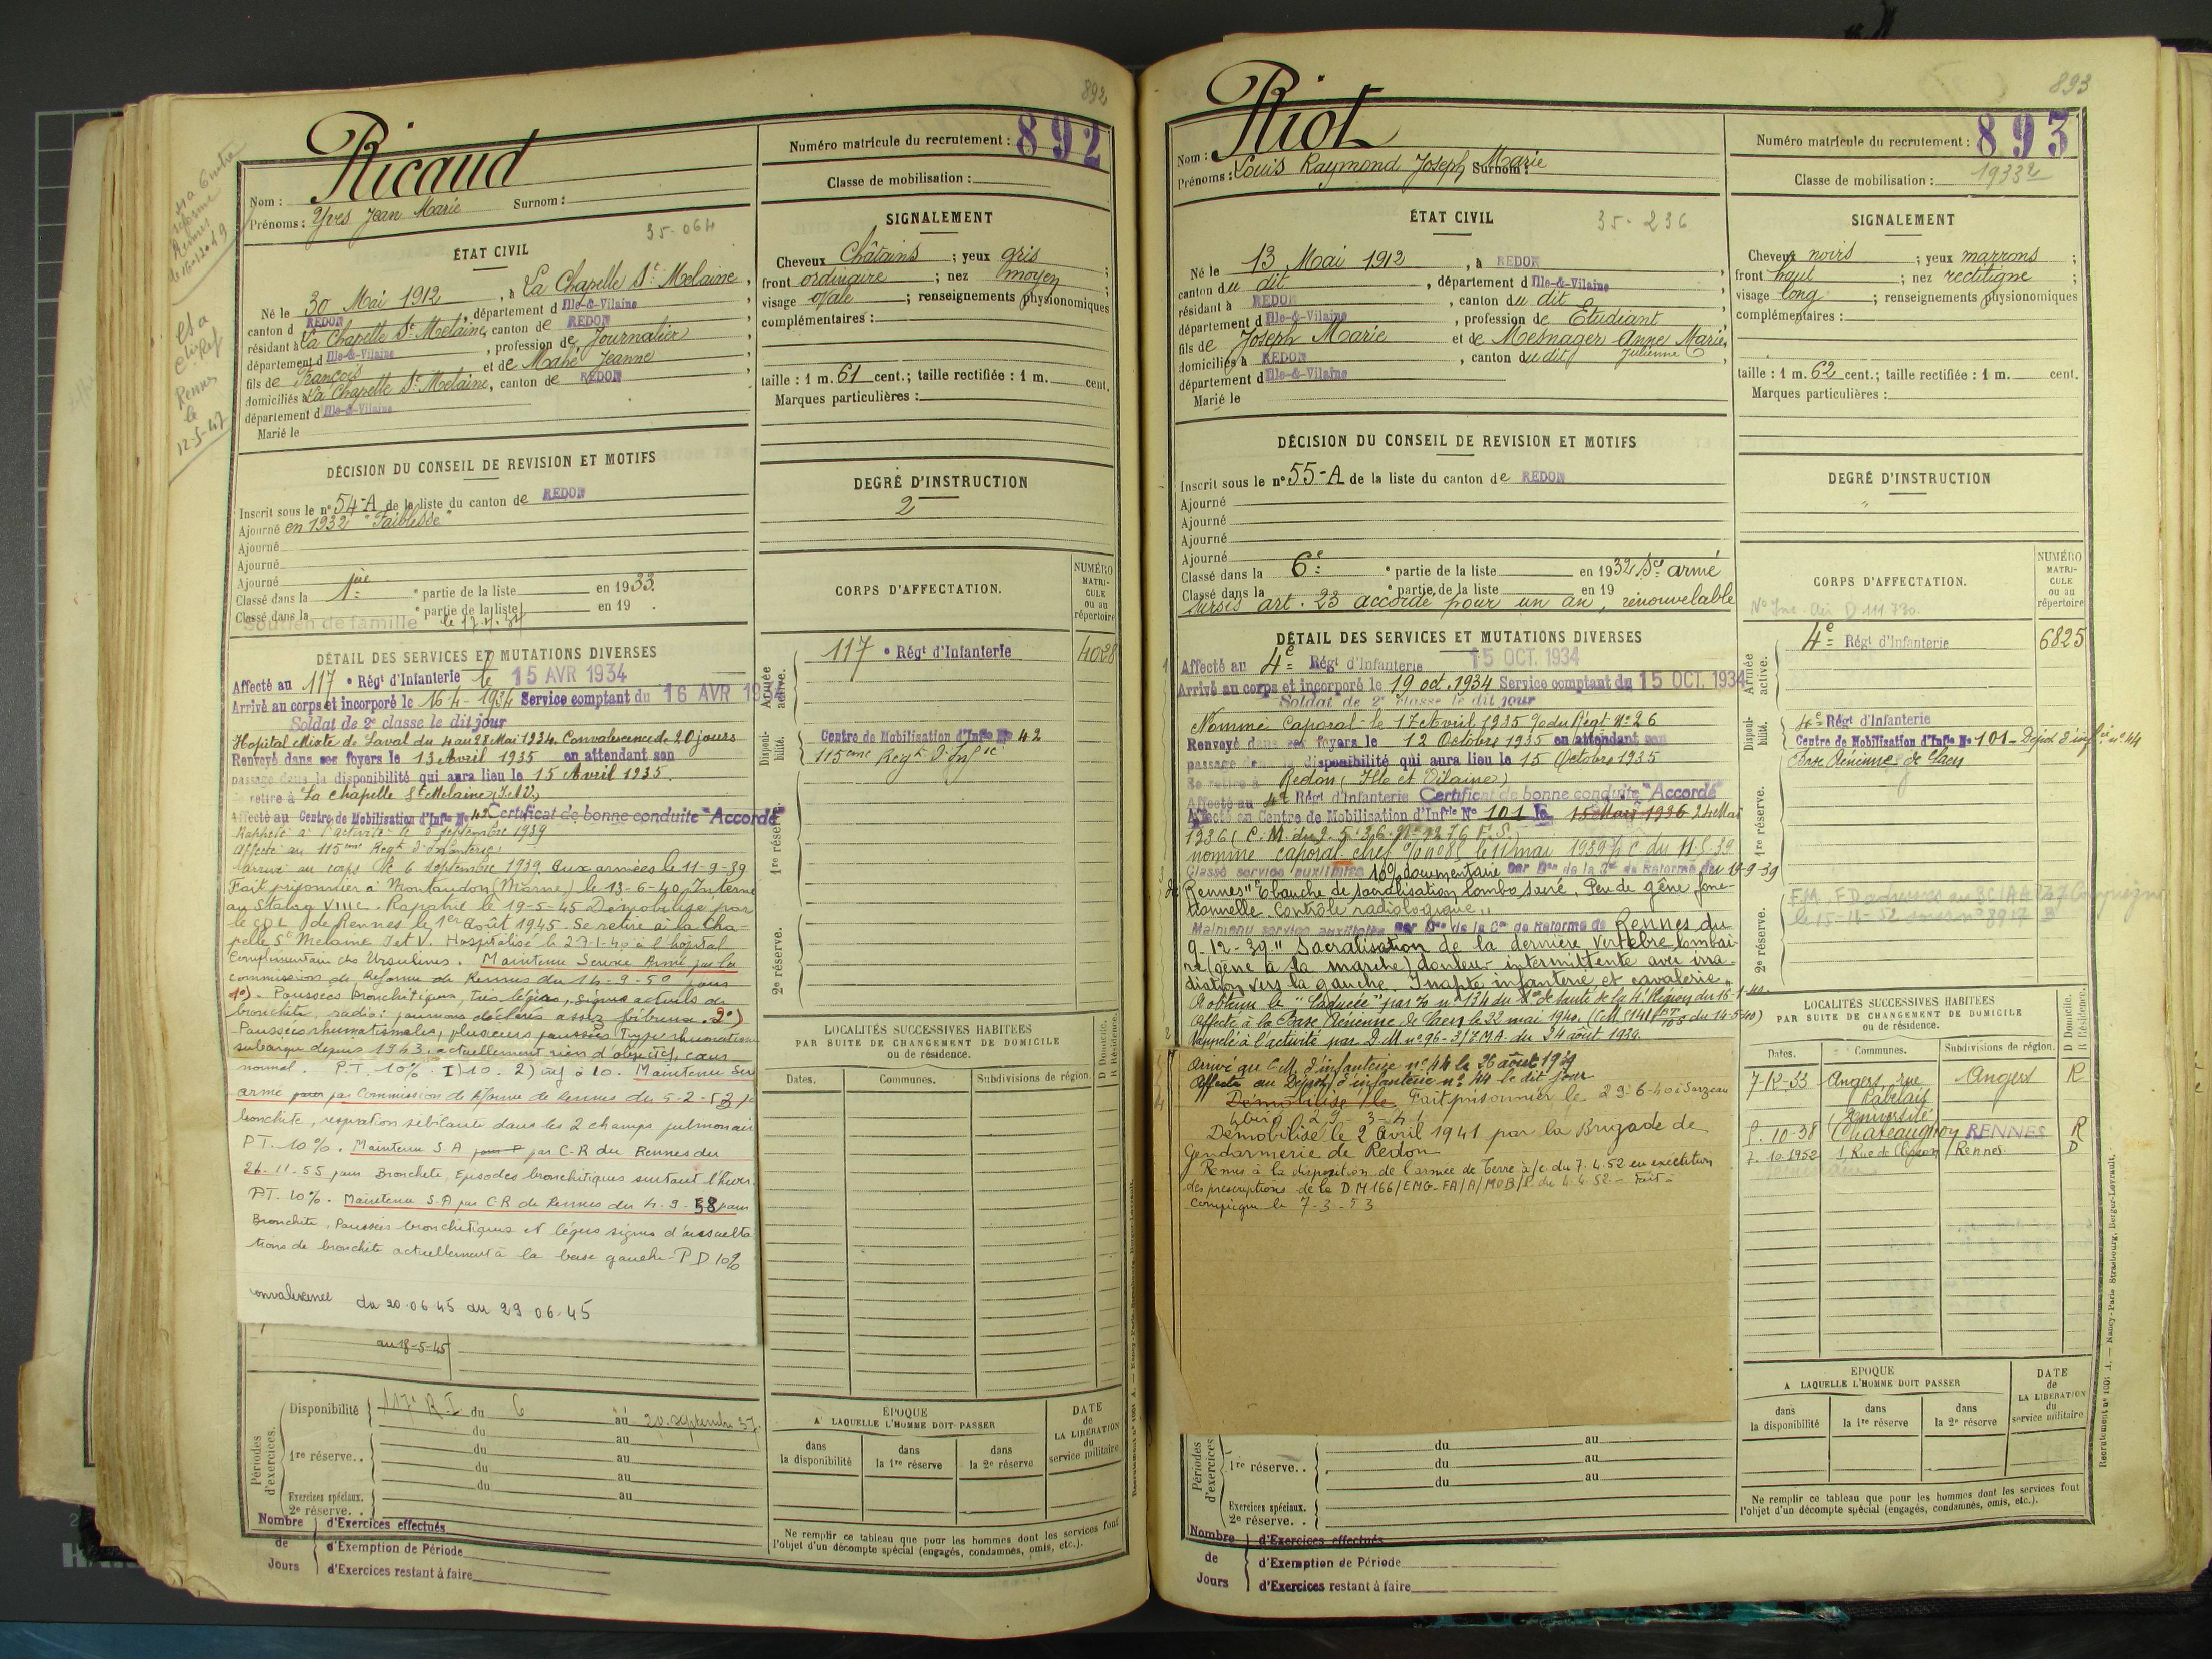 892
Ricaud
Nom :
Prénoms : Yves Jean Marie Surnom :
Numéro matricule du recrutement : 892
Classe de mobilisation :
réforme
Rennes
le 16-12-49
Rennes
le
12-5-47
ÉTAT CIVIL
35-064
Né le 30 Mai 1912, à La Chapelle St Melaine,
canton d REDON, département d Ille-&-Vilaine
résidant à La Chapelle St Melaine, canton de REDON
département d Ille-&-Vilaine, profession de Journalier
fils de François et de Mahé Jeanne
domiciliés à La Chapelle St Melaine, canton de REDON
département d Ille-&-Vilaine
Marié le
SIGNALEMENT
Cheveux Châtains ; yeux gris ;
front ordinaire ; nez moyen ;
visage ovale ; renseignements physionomiques
complémentaires :
taille : 1 m. 61 cent.; taille rectifiée : 1 m. cent.
Marques particulières :
DÉCISION DU CONSEIL DE REVISION ET MOTIFS
Inscrit sous le n° 54-A de la liste du canton de REDON
Ajourné en 1932 "Faiblesse"
Ajourné
Ajourné
Ajourné
Classé dans la 1re partie de la liste en 1933.
Classé dans la partie de la liste en 19 .
Soutien de famille
DEGRÉ D'INSTRUCTION
2
CORPS D'AFFECTATION.
NUMÉRO
MATRI-
CULE
ou au
répertoire
Armée active.
117e Régt d'Infanterie 4028
Disponi-bilité.
Centre de Mobilisation d'Infie No 42
115eme Regt d'Infie
1re réserve.
2e réserve.
DÉTAIL DES SERVICES ET MUTATIONS DIVERSES
Affecté au 117e Régt d'Infanterie le 15 AVR 1934
Arrivé au corps et incorporé le 16-4-1934 Service comptant du 16 AVR 1934
Soldat de 2e classe le dit jour
Hopital Mixte de Laval du 4 au 28 Mai 1934. Convalescence de 20 jours
Renvoyé dans ses foyers le 13 Avril 1935 en attendant son
passage dans la disponibilité qui aura lieu le 15 Avril 1935.
Se retire à La Chapelle St Melaine (I et V)
Affecté au Centre de Mobilisation d'Infie No 42 Certificat de bonne conduite "Accordé"
Rappelé à l'activité le 3 septembre 1939
Affecté au 115eme Regt d'Infanterie
arrivé au corps le 6 septembre 1939. Aux armées le 11-9-39
Fait prisonnier à Montaudon (Marne) le 13-6-40, Interné
au Stalag VIIIC. Rapatrié le 19-5-45 Démobilisé par
le CDL de Rennes le 1er Août 1945. Se retire à la Cha-
pelle St Melaine I et V. Hospitalisé le 27-1-40 à l'hôpital
Complémentaire des Ursulines. Maintenu Service Armé par la
commission de Réforme de Rennes du 14-9-50 pour
1°). Poussées bronchitiques, très légères, signes actuels de
bronchite, radio: poumons déclarés assez fibreux. 2°)
Poussées rhumatismales, plusieurs poussées type rhumatisme
subaigu depuis 1943, actuellement rien d'objectif, cœur
normal. P.T. 10% I) 10. 2) inf à 10. Maintenu Ser
armé par Commission de Réforme de Rennes du 5-2-53 p.
bronchite, respiration sibilante dans les 2 champs pulmonaires
P.T. 10%. Maintenu S.A par C-R de Rennes du
26-11-55 pour Bronchite, Episodes bronchitiques surtout l'hiver
P.T. 10%. Maintenu S.A par C.R de Rennes du 4-9-58 pour
Bronchite, Poussées bronchitiques et légers signes d'ausculta
tions de bronchite actuellement à la base gauche P D 10%
convalescence du 20-06-45 au 29-06-45
au 18-5-45
LOCALITÉS SUCCESSIVES HABITÉES
PAR SUITE DE CHANGEMENT DE DOMICILE
ou de résidence.
D Domicile. R Résidence.
Dates. Communes. Subdivisions de région.
Périodes d'exercices.
Disponibilité 117e R.I du 6 au 20 septembre 37
du au
1re réserve.. du au
du au
du au
Exercices spéciaux.
2e réserve. .
Nombre de Jours
d'Exercices effectués
d'Exemption de Période
d'Exercices restant à faire
ÉPOQUE
A LAQUELLE L'HOMME DOIT PASSER
dans la disponibilité
dans la 1re réserve
dans la 2e réserve
DATE
de
LA LIBÉRATION
du
service militaire
Ne remplir ce tableau que pour les hommes dont les services font
l'objet d'un décompte spécial (engagés, condamnés, omis, etc.).
893
Riot
Nom :
Prénoms : Louis Raymond Joseph Marie Surnom :
Numéro matricule du recrutement : 893
Classe de mobilisation : 1933
ÉTAT CIVIL
35-236
Né le 13 Mai 1912, à REDON,
canton du dit, département d Ille-&-Vilaine
résidant à REDON, canton du dit
département d Ille-&-Vilaine, profession de Etudiant
fils de Joseph Marie et de Mesnager Anne Marie,
Julienne
domiciliés à REDON, canton du dit
département d Ille-&-Vilaine
Marié le
SIGNALEMENT
Cheveux noirs ; yeux marrons ;
front haut ; nez rectiligne ;
visage long ; renseignements physionomiques
complémentaires :
taille : 1 m. 62 cent.; taille rectifiée : 1 m. cent.
Marques particulières :
DÉCISION DU CONSEIL DE REVISION ET MOTIFS
Inscrit sous le n° 55-A de la liste du canton de REDON
Ajourné
Ajourné
Ajourné
Ajourné
Classé dans la 6e partie de la liste en 1932 Sce armé
Classé dans la partie de la liste en 19
Sursis art. 23 accordé pour un an, renouvelable
DEGRÉ D'INSTRUCTION
CORPS D'AFFECTATION.
NUMÉRO
MATRI-
CULE
ou au
répertoire
Armée active.
4e Régt d'Infanterie 6825
Disponi-bilité.
4e Régt d'Infanterie
Centre de Mobilisation d'Infie No 101 - Depot d'infie n° 44
Base Aérienne de Caen
1re réserve.
2e réserve.
DÉTAIL DES SERVICES ET MUTATIONS DIVERSES
Affecté au 4e Régt d'Infanterie 15 OCT. 1934
Arrivé au corps et incorporé le 19 oct. 1934 Service comptant du 15 OCT. 1934
Soldat de 2e classe le dit jour
Nommé Caporal le 17 Avril 1935 % du Régt N° 26
Renvoyé dans ses foyers le 12 Octobre 1935 en attendant son
passage dans la disponibilité qui aura lieu le 15 Octobre 1935
Se retire à Redon (Ille et Vilaine)
Affecté au 4e Régt d'Infanterie Certificat de bonne conduite "Accordé"
Affecté au Centre de Mobilisation d'Infie No 101 le 15 Mars 1936 24 Mai
nommé caporal-chef
Rennes "Ebauche de sacralisation lombo sacré. Peu de gêne fonc-
tionnelle. Contrôle radiologique"
Maintenu service auxiliaire par Don de la Con de Réforme de Rennes du
9-12-39 "Sacralisation de la dernière vertèbre lombai
re (gêne à la marche) douleur intermittente avec irra-
diation vers la gauche. Inapte infanterie et cavalerie"
Affecté à la Base Aérienne de Caen le 22 mai 1940.
Rappelé à l'activité par D.M n° 96-3/E.M.A. du 24 août 1939.
Arrivé au C.M. d'infanterie n° 44 le 26 août 1939
Affecté au Dépôt d'infanterie n° 44 le dit jour
Démobilisé le Fait prisonnier le 29-6-40 à Sarzeau
Démobilisé le 2 Avril 1941 par la Brigade de
Gendarmerie de Redon
Remis à la disposition de l'armée de Terre à/c. du 7.4.52 en exécution
des prescriptions de la D.M 166/EMG-FA/A/MOB/ du 4.4.52 - Fait -
Compiègne le 7-3-53
LOCALITÉS SUCCESSIVES HABITÉES
PAR SUITE DE CHANGEMENT DE DOMICILE
ou de résidence.
D Domicile. R Résidence.
Dates. Communes. Subdivisions de région.
7-12-33 Angers, rue Rabelais Angers R
10-38 RENNES R
7.10.1952 1, Rue de Clisson Rennes D
Périodes d'exercices
du au
1re réserve. . du au
du au
Exercices spéciaux.
2e réserve. .
Nombre de Jours
d'Exercices effectués
d'Exemption de Période
d'Exercices restant à faire
ÉPOQUE
A LAQUELLE L'HOMME DOIT PASSER
dans la disponibilité
dans la 1re réserve
dans la 2e réserve
DATE
de
LA LIBÉRATION
du
service militaire
Ne remplir ce tableau que pour les hommes dont les services font
l'objet d'un décompte spécial (engagés, condamnés, omis, etc.).
Recrutement n° 1001 A. — Nancy-Paris Strasbourg, Berger-Levrault.